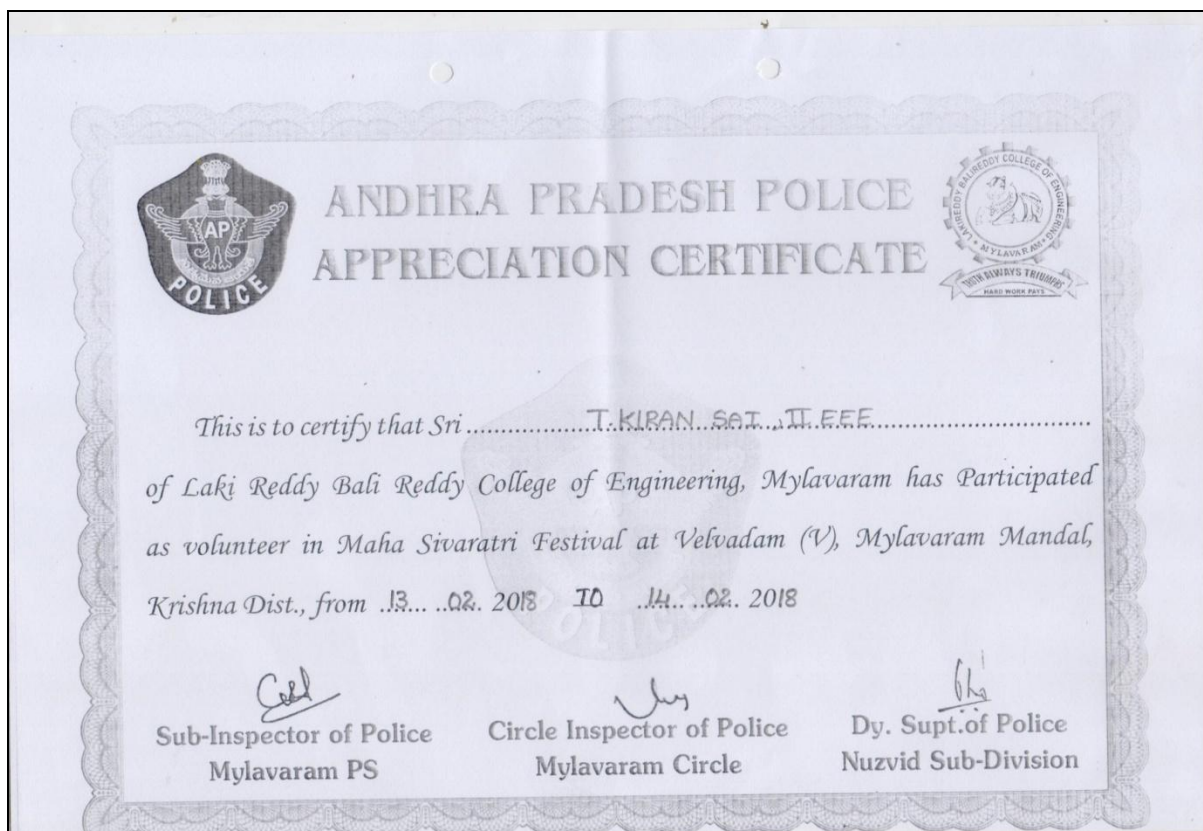 ANDHRA PRADESH POLICE
APPRECIATION CERTIFICATE
AP
POLICE
LAKIREDDY BALIREDDY COLLEGE OF ENGINEERING
MYLAVARAM
TRUTH ALWAYS TRIUMPHS
HARD WORK PAYS
This is to certify that Sri ................T. KIRAN SAI, II EEE................
of Laki Reddy Bali Reddy College of Engineering, Mylavaram has Participated
as volunteer in Maha Sivaratri Festival at Velvadam (V), Mylavaram Mandal,
Krishna Dist., from 13. 02. 2018 TO 14. 02. 2018
POLICE
Sub-Inspector of Police
Mylavaram PS
Circle Inspector of Police
Mylavaram Circle
Dy. Supt.of Police
Nuzvid Sub-Division